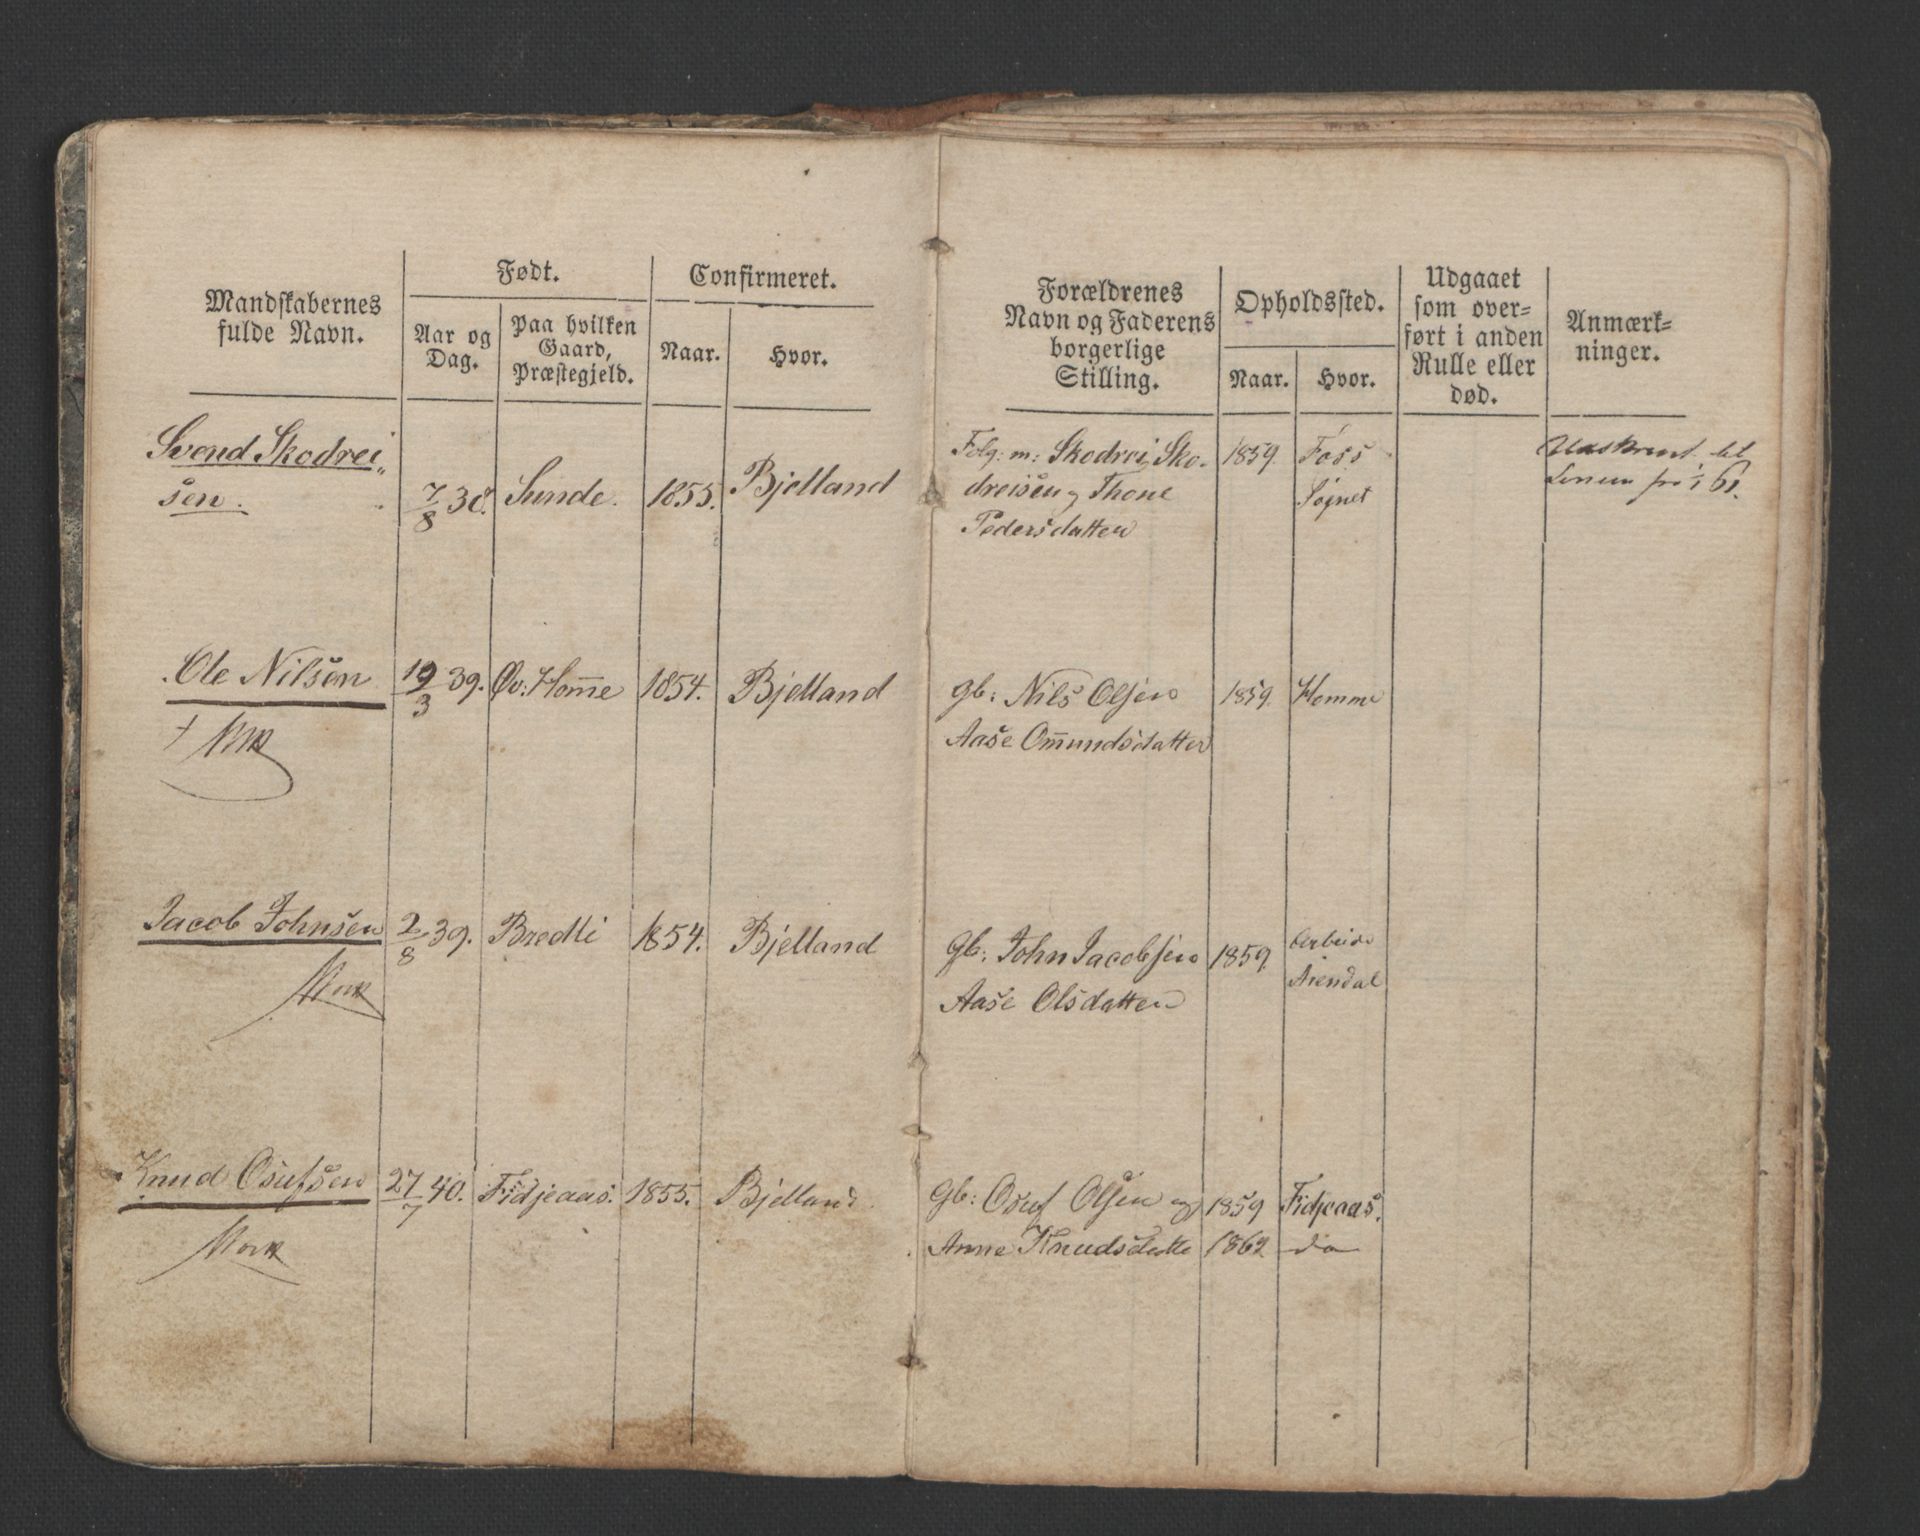 Mandskabernes
fulde Navn.
Født.
Aar og
Dag.
Paa hvilken
Gaard,
Præstegjeld.
Confirmeret.
Naar.
Hvor.
Forældrenes
Navn og Faderens
borgerlige
Stilling.
Opholdssted.
Naar.
Hvor.
Udgaaet
som over-
ført i anden
Rulle eller
død.
Anmærk-
ninger.
Svend Skodrei„
sen.
7/8 38. Sunde. 1855. Bjelland
Folg: m: Skodrei Sko-
dreisen og Thone
Pedersdatter
1859. Foss
Søgnet
Udskrevet til
Linien for i 61.
Ole Nilsen 19/3 39. Øv: Homme 1854. Bjelland
Gb: Nils Olsen 1859. Homme
Aase Omundsdatter
Jacob Johnsen 2/8 39. Bredli 1854. Bjelland
Gb: John Jacobsen 1859. Arbeide
Aase Olsdatter Arendal
Knud Osufsen 27/7 40. Fidjeaas. 1855. Bjelland.
Gb: Osuf Olsen og 1859 Fidjeaas.
Anne Knudsdatte 1862 do